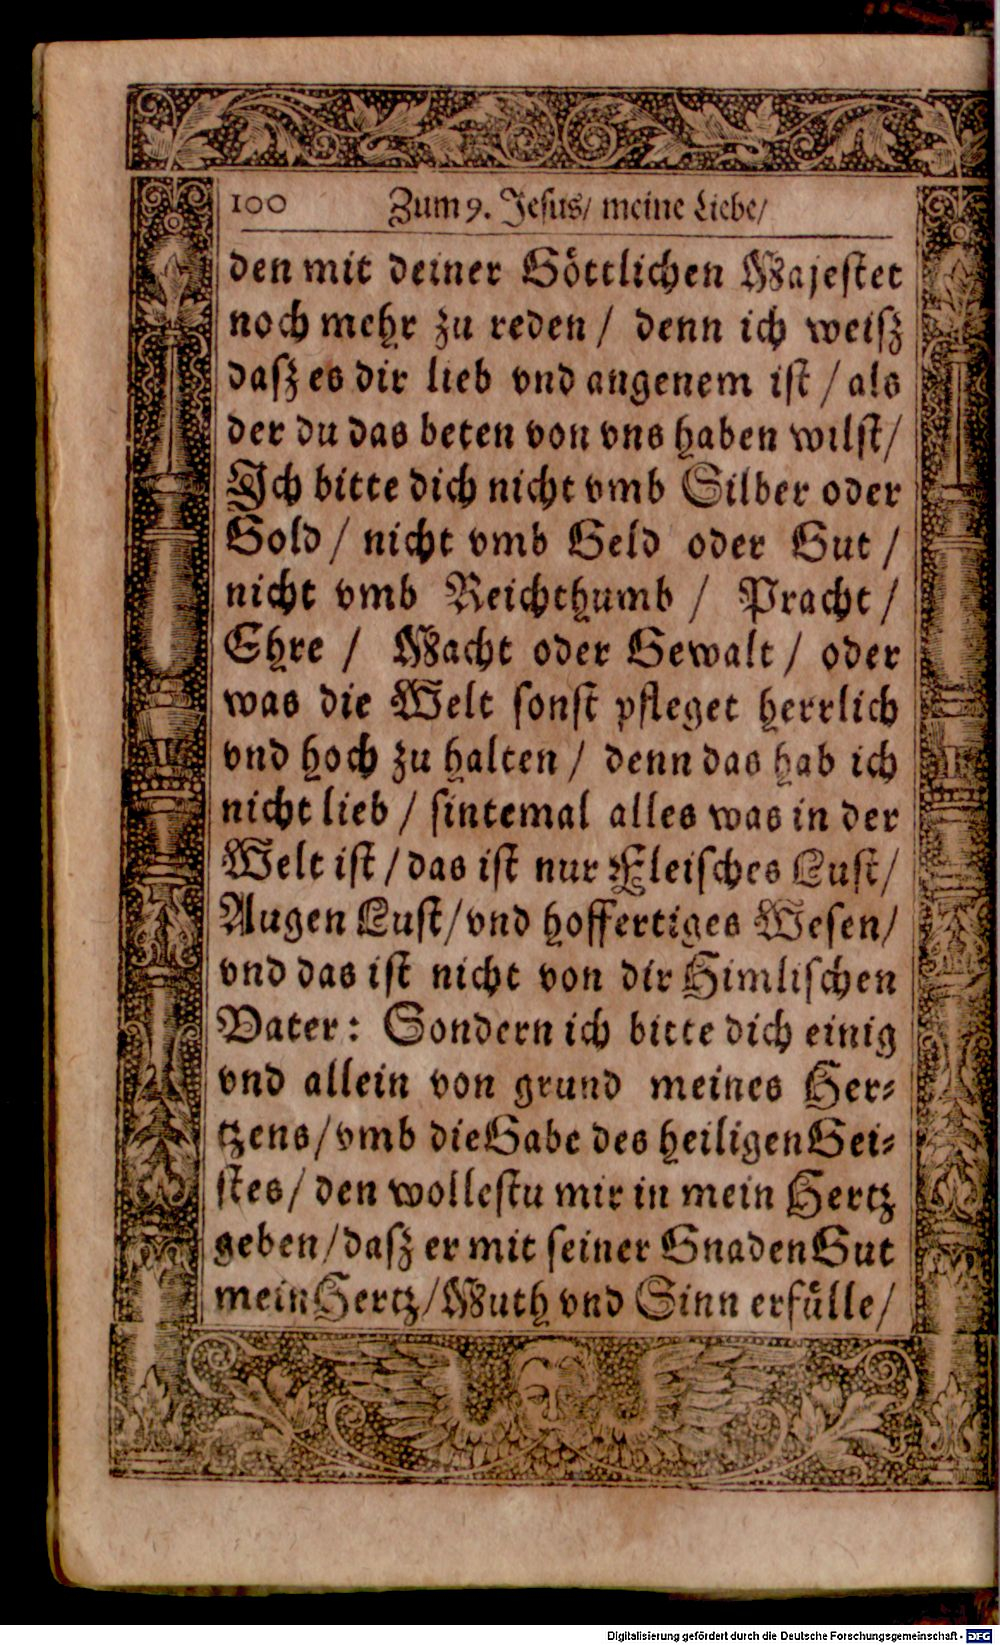 100 Zum 9. Jesus/ meine Liebe/
den mit deiner Göttlichen Majestet
noch mehr zu reden / denn ich weiß
daß es dir lieb vnd angenem ist / als
der du das beten von vns haben wilst/
Ich bitte dich nicht vmb Silber oder
Gold / nicht vmb Geld oder Gut /
nicht vmb Reichthumb / Pracht /
Ehre / Macht oder Gewalt / oder
was die Welt sonst pfleget herrlich
vnd hoch zu halten / denn das hab ich
nicht lieb / sintemal alles was in der
Welt ist / das ist nur Fleisches Lust/
Augen Lust/ vnd hoffertiges Wesen/
vnd das ist nicht von dir Himlischen
Vater: Sondern ich bitte dich einig
vnd allein von grund meines Her⸗
tzens/ vmb die Gabe des heiligen Gei⸗
stes/ den wollestu mir in mein Hertz
geben/ daß er mit seiner Gnaden Gut
mein Hertz/ Muth vnd Sinn erfülle/
Digitalisierung gefördert durch die Deutsche Forschungsgemeinschaft - DFG